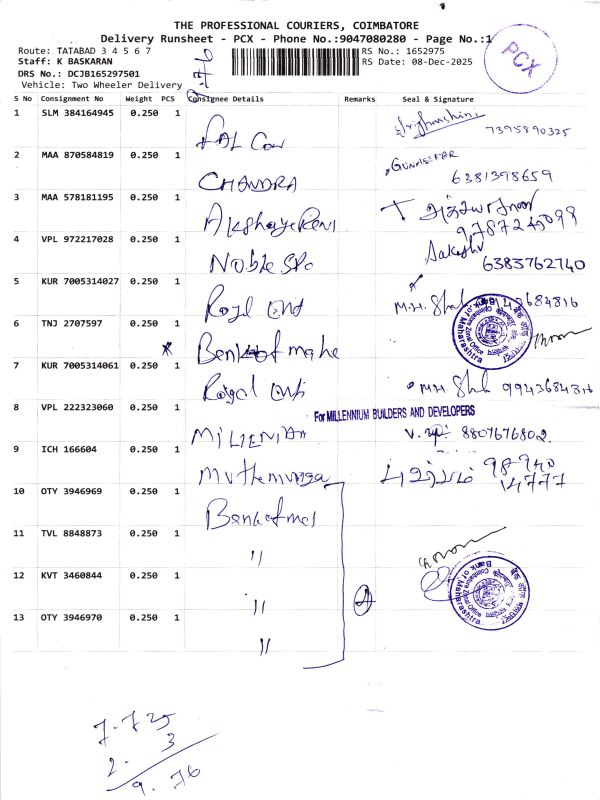 THE PROFESSIONAL COURIERS, COIMBATORE
Delivery Runsheet - PCX - Phone No.:9047080280 - Page No.:1
Route: TATABAD 3 4 5 6 7 RS No.: 1652975
Staff: K BASKARAN RS Date: 08-Dec-2025
DRS No.: DCJB165297501
Vehicle: Two Wheeler Delivery
PCX
S No Consignment No Weight PCS Consignee Details Remarks Seal & Signature
1 SLM 384164945 0.250 1 7395890325
2 MAA 870584819 0.250 1 CHANDRA GUNASEKAR 6381398659
3 MAA 578181195 0.250 1 9787245099
4 VPL 972217028 0.250 1 Noble Aakash 6383762740
5 KUR 7005314027 0.250 1 M.H. Shah 9943684816
6 TNJ 2707597 0.250 1 Bank of mahe
Bank of Maharashtra
Coimbatore Zonal Office
7 KUR 7005314061 0.250 1 Royal M.H Shah 9943684816
For MILLENNIUM BUILDERS AND DEVELOPERS
8 VPL 222323060 0.250 1 8807676802
9 ICH 166604 0.250 1 98940 14777
10 OTY 3946969 0.250 1
11 TVL 8848873 0.250 1 "
12 KVT 3460844 0.250 1 "
Bank of Maharashtra
Coimbatore Zonal Office
13 OTY 3946970 0.250 1 "
7.725
2. 3
9.76